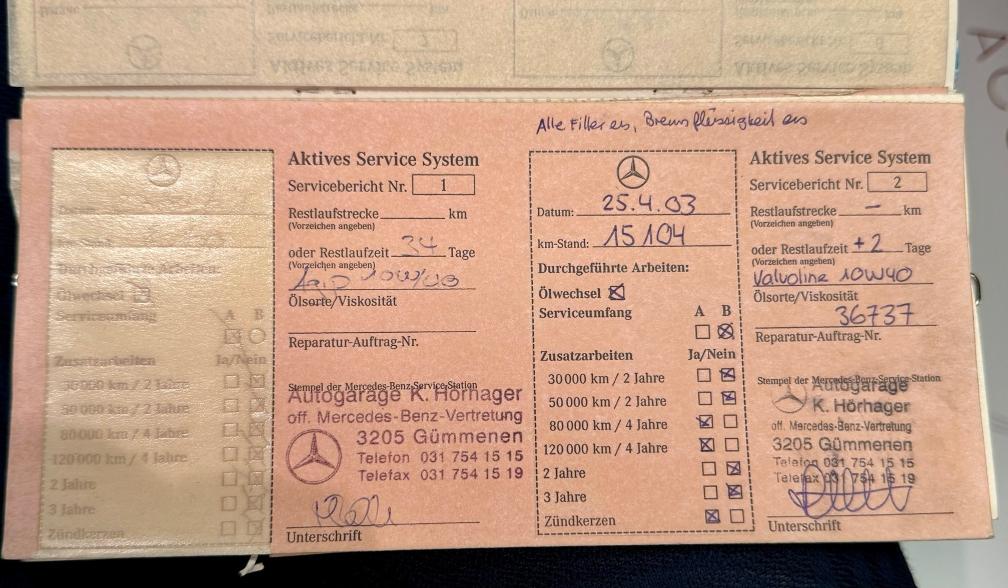 Alle Filter es, Bremsflüssigkeit es
Aktives Service System
Servicebericht Nr. 1
Restlaufstrecke km
(Vorzeichen angeben)
oder Restlaufzeit 34 Tage
(Vorzeichen angeben)
Agip 10W/40
Ölsorte/Viskosität
Reparatur-Auftrag-Nr.
Stempel der Mercedes-Benz-Service-Station
Autogarage K. Hörhager
off. Mercedes-Benz-Vertretung
3205 Gümmenen
Telefon 031 754 15 15
Telefax 031 754 15 19
Unterschrift
km-Stand:
Durchgeführte Arbeiten:
Ölwechsel
Serviceumfang A B
Zusatzarbeiten Ja/Nein
30 000 km / 2 Jahre
50 000 km / 2 Jahre
80 000 km / 4 Jahre
120 000 km / 4 Jahre
2 Jahre
3 Jahre
Zündkerzen
Datum: 25.4.03
km-Stand: 15104
Durchgeführte Arbeiten:
Ölwechsel
Serviceumfang A B
Zusatzarbeiten Ja/Nein
30 000 km / 2 Jahre
50 000 km / 2 Jahre
80 000 km / 4 Jahre
120 000 km / 4 Jahre
2 Jahre
3 Jahre
Zündkerzen
Aktives Service System
Servicebericht Nr. 2
Restlaufstrecke – km
(Vorzeichen angeben)
oder Restlaufzeit +2 Tage
(Vorzeichen angeben)
Valvoline 10W40
Ölsorte/Viskosität
36737
Reparatur-Auftrag-Nr.
Stempel der Mercedes-Benz-Service-Station
Autogarage
K. Hörhager
off. Mercedes-Benz-Vertretung
3205 Gümmenen
Telefon 031 754 15 15
Telefax 031 754 15 19
Unterschrift